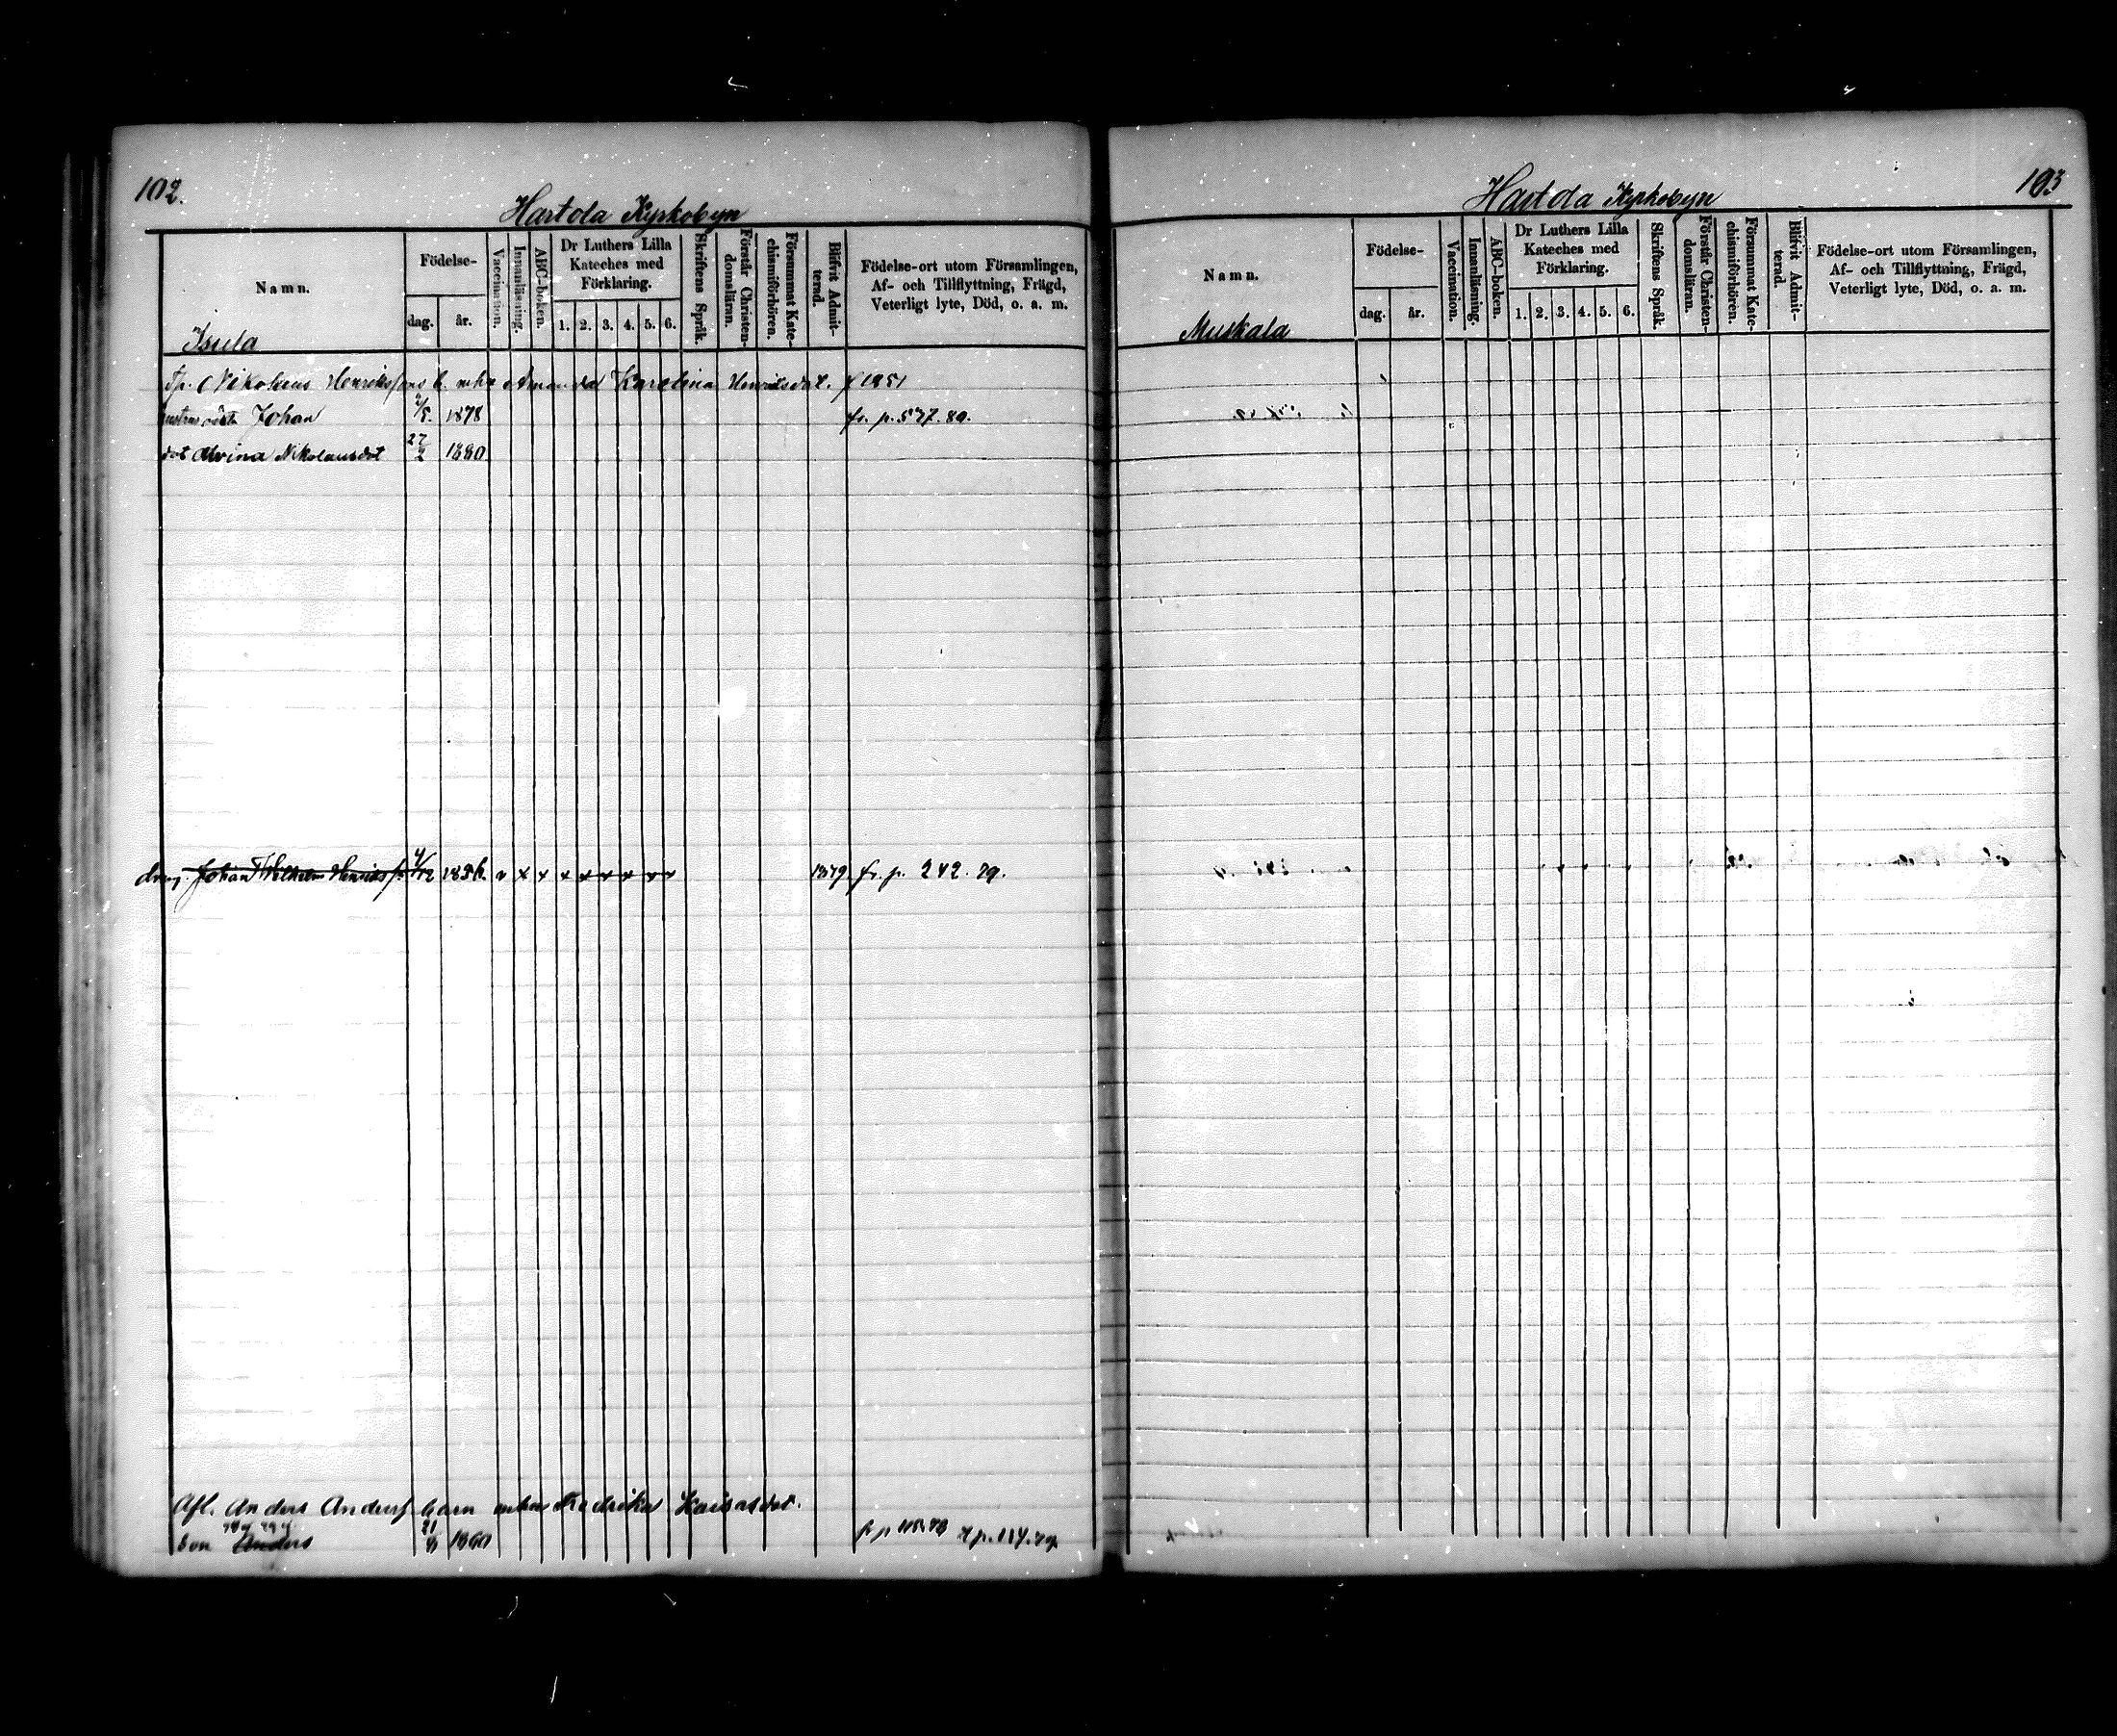 102.
Hartola Kyrkobyn
Namn.
Födelse-
dag.
år.
Vaccination.
Innanläsning.
ABC-boken.
Dr Luthers Lilla
Kateches med
Förklaring.
1. 2. 3. 4. 5. 6.
Skriftens Språk.
Förstår Christen-
domsläran.
Försummat Kate-
chismiförhören.
Blifvit Admit-
terad.
Födelse-ort utom Församlingen,
Af- och Tillflyttning, Frägd,
Veterligt lyte, Död, o. a. m.
Isula
Nikolaus Henrikssons b. Amanda Karolina Henriksdot. f 1851
Johan 1878 fr. p. 577. 80.
dot Alvina Nikolausdot 27/2 1880
dreng. Johan Wilhelm Henrikss. 4/12 1856. x x x x x x x x x 1879 fr. p. 242. 79.
Afl. Anders Anderss barn Fredrika Kaisasdot.
son Anders 21 1860 fr p 115.78 t p. 114. 79.
103
Hartola Kyrkobyn
Namn.
Födelse-
dag.
år.
Vaccination.
Innanläsning.
ABC-boken.
Dr Luthers Lilla
Kateches med
Förklaring.
1. 2. 3. 4. 5. 6.
Skriftens Språk.
Förstår Christen-
domsläran.
Försummat Kate-
chismiförhören.
Blifvit Admit-
terad.
Födelse-ort utom Församlingen,
Af- och Tillflyttning, Frägd,
Veterligt lyte, Död, o. a. m.
Muskala